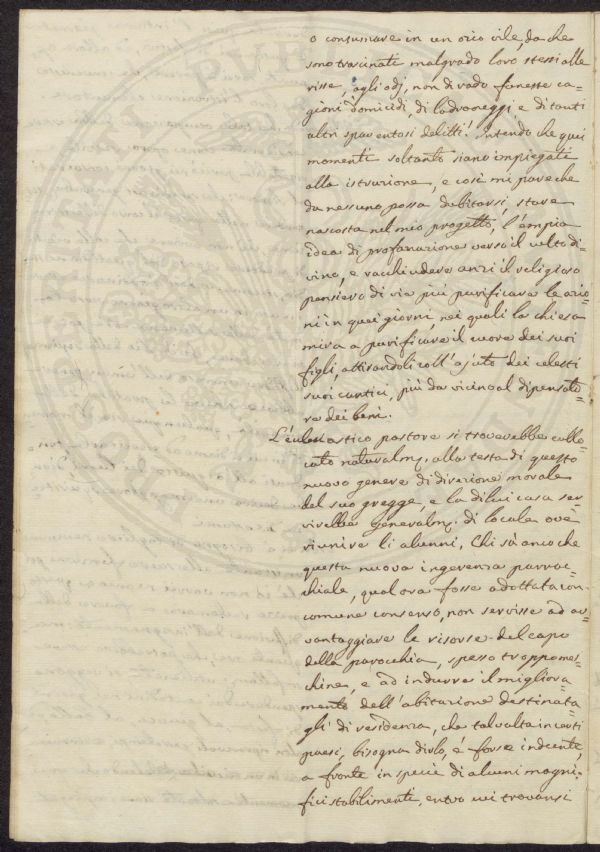 o consumare in un ozio vile, da che
sono trascinati malgrado loro stessi alle
risse, agli odj, non di rado funeste ca=
gioni d'omicidi, di ladroneggi e di tanti
altri spaventosi delitti! Intendo che quei
momenti soltanto siano impiegati
alla istruzione, e così mi pare che
da nessuno possa dubitarsi, stare
nascosta nel mio progetto, l'empia
idea di profanazione verso il culto di=
vino, e racchiudere anzi il religioso
pensiero di via più purificare le azio=
ni in quei giorni, nei quali la chiesa
mira a purificare il cuore dei suoi
figli, attirandoli coll'ajuto dei celesti
suoi cantici, più da vicino al dispensato=
re dei beni.
L'eclesiastico pastore si troverebbe collo=
cato naturalm. alla testa di questo
nuovo genere di direzione morale
del suo gregge, e la di lui casa ser=
virebbe generalm. di locale ove
riunire li alunni. Chi sà anco che
questa nuova ingerenza parroc=
chiale, qual ora fosse adottata con
comune consenso, non servisse ad av=
vantaggiare le risorse del capo
della parocchia, spesso troppo mes=
chine, e ad indurre il migliora=
mento dell'abitazione destinata
gli di residenza, che talvolta in certi
paesi, bisogna dirlo, é forse indecente,
a fronte in specie di alcuni magni=
fici stabilimenti, entro cui trovansi